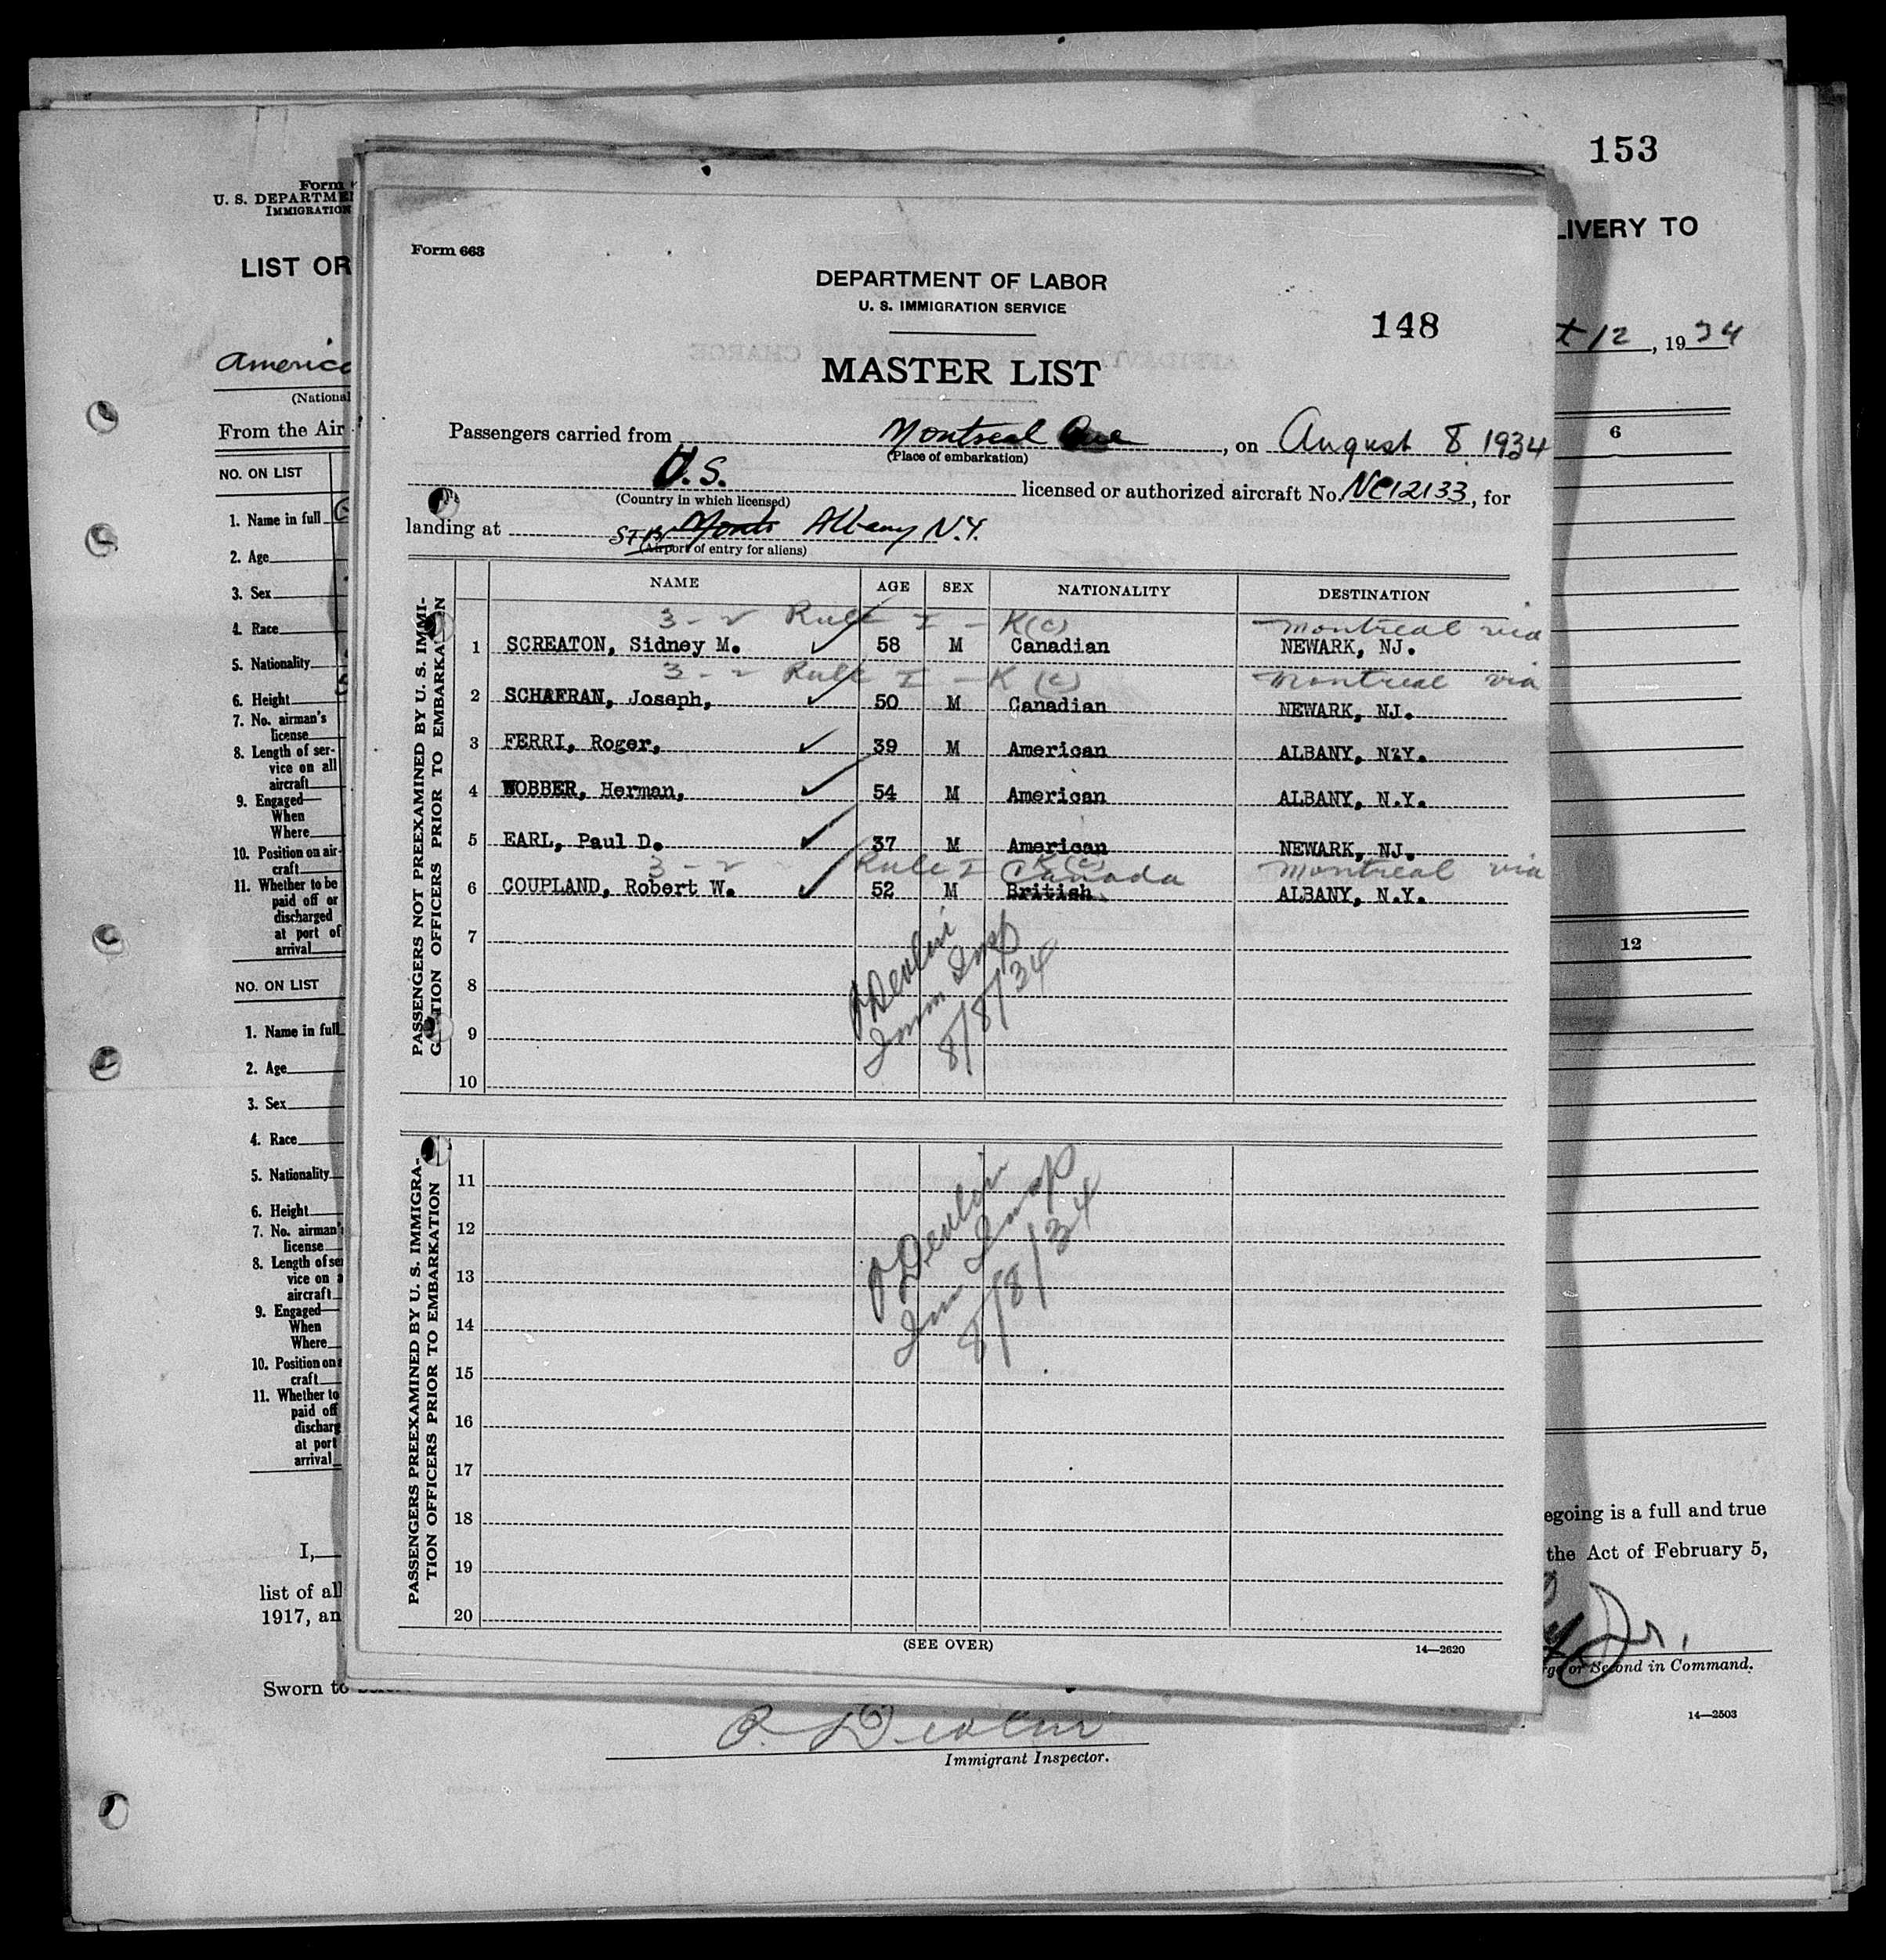 153
Form
U. S. DEPARTME
IMMIGRATION
LIVERY TO
LIST OR
t 12, 1934
America
(National
From the Air
6
NO. ON LIST
1. Name in full
2. Age
3. Sex
4. Race
5. Nationality
6. Height
7. No. airman's
license
8. Length of ser-
vice on all
aircraft
9. Engaged—
When
Where
10. Position on air-
craft
11. Whether to be
paid off or
discharged
at port of
arrival
12
NO. ON LIST
1. Name in full
2. Age
3. Sex
4. Race
5. Nationality
6. Height
7. No. airman's
license
8. Length of ser
vice on a
aircraft
9. Engaged—
When
Where
10. Position on a
craft
11. Whether to
paid off
discharg
at port
arrival
Form 663
DEPARTMENT OF LABOR
U. S. IMMIGRATION SERVICE
148
MASTER LIST
Passengers carried from Montreal Que, on August 8 1934
(Place of embarkation)
U.S. licensed or authorized aircraft No. NC12133, for
(Country in which licensed)
landing at Albany N.Y.
(Airport of entry for aliens)
NAME AGE SEX NATIONALITY DESTINATION
PASSENGERS NOT PREEXAMINED BY U. S. IMMI-
GRATION OFFICERS PRIOR TO EMBARKATION
3 - 2 Rule I - K(c) Montreal via
1 SCREATON, Sidney M. 58 M Canadian NEWARK, NJ.
3 - 2 Rule I - K(c) Montreal via
2 SCHAFRAN, Joseph, 50 M Canadian NEWARK, NJ.
3 FERRI, Roger, 39 M American ALBANY, N.Y.
4 WOBBER, Herman, 54 M American ALBANY, N.Y.
5 EARL, Paul D. 37 M American NEWARK, NJ.
3 - 2 Rule I K(c) Canada Montreal via
6 COUPLAND, Robert W. 52 M British ALBANY, N.Y.
7
8
9
10
P Devlin
Imm Insp
8/8/34
PASSENGERS PREEXAMINED BY U. S. IMMIGRA-
TION OFFICERS PRIOR TO EMBARKATION
11
12
13
14
15
16
17
18
19
20
P Devlin
Imm Insp
8/8/34
(SEE OVER)
14—2620
I,
egoing is a full and true
list of all
the Act of February 5,
1917, an
Jr.
rge or Second in Command.
Sworn to before
14—2503
P. Devlin
Immigrant Inspector.